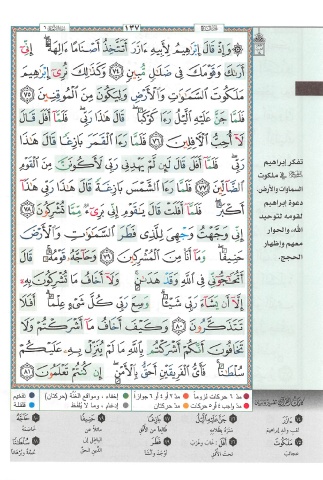 ١٣٧
۞ وَإِذْ قَالَ إِبْرَٰهِيمُ لِأَبِيهِ ءَازَرَ أَتَتَّخِذُ أَصْنَامًا ءَالِهَةً إِنِّىٓ
أَرَىٰكَ وَقَوْمَكَ فِى ضَلَٰلٍ مُّبِينٍ ٧٤ وَكَذَٰلِكَ نُرِىٓ إِبْرَٰهِيمَ
مَلَكُوتَ ٱلسَّمَٰوَٰتِ وَٱلْأَرْضِ وَلِيَكُونَ مِنَ ٱلْمُوقِنِينَ ٧٥
فَلَمَّا جَنَّ عَلَيْهِ ٱلَّيْلُ رَءَا كَوْكَبًا قَالَ هَٰذَا رَبِّى فَلَمَّآ أَفَلَ قَالَ
لَآ أُحِبُّ ٱلْءَافِلِينَ ٧٦ فَلَمَّا رَءَا ٱلْقَمَرَ بَازِغًا قَالَ هَٰذَا
رَبِّى فَلَمَّآ أَفَلَ قَالَ لَئِن لَّمْ يَهْدِنِى رَبِّى لَأَكُونَنَّ مِنَ ٱلْقَوْمِ
ٱلضَّآلِّينَ ٧٧ فَلَمَّا رَءَا ٱلشَّمْسَ بَازِغَةً قَالَ هَٰذَا رَبِّى هَٰذَآ
أَكْبَرُ فَلَمَّآ أَفَلَتْ قَالَ يَٰقَوْمِ إِنِّى بَرِىٓءٌ مِّمَّا تُشْرِكُونَ ٧٨
إِنِّى وَجَّهْتُ وَجْهِىَ لِلَّذِى فَطَرَ ٱلسَّمَٰوَٰتِ وَٱلْأَرْضَ
حَنِيفًا وَمَآ أَنَا۠ مِنَ ٱلْمُشْرِكِينَ ٧٩ وَحَآجَّهُۥ قَوْمُهُۥ قَالَ
أَتُحَٰٓجُّوٓنِّى فِى ٱللَّهِ وَقَدْ هَدَىٰنِ وَلَآ أَخَافُ مَا تُشْرِكُونَ بِهِۦٓ
إِلَّآ أَن يَشَآءَ رَبِّى شَيْـًٔا وَسِعَ رَبِّى كُلَّ شَىْءٍ عِلْمًا أَفَلَا
تَتَذَكَّرُونَ ٨٠ وَكَيْفَ أَخَافُ مَآ أَشْرَكْتُمْ وَلَا
تَخَافُونَ أَنَّكُمْ أَشْرَكْتُم بِٱللَّهِ مَا لَمْ يُنَزِّلْ بِهِۦ عَلَيْكُمْ
سُلْطَٰنًا فَأَىُّ ٱلْفَرِيقَيْنِ أَحَقُّ بِٱلْأَمْنِ إِن كُنتُمْ تَعْلَمُونَ ٨١
تفكر إبراهيم
في ملكوت
السماوات والأرض.
دعوة إبراهيم
لقومه لتوحيد
الله، والحوار
معهم وإظهار
الحجج.
مدّ ٦ حركات لزوماً مدّ ٢ أو ٤ أو ٦ جوازاً إخفاء، ومواقع الغنّة (حركتان) تفخيم
مدّ واجب ٤ أو ٥ حركات مدّ حركتان إدغام، وما لا يُلفظ قلقلة